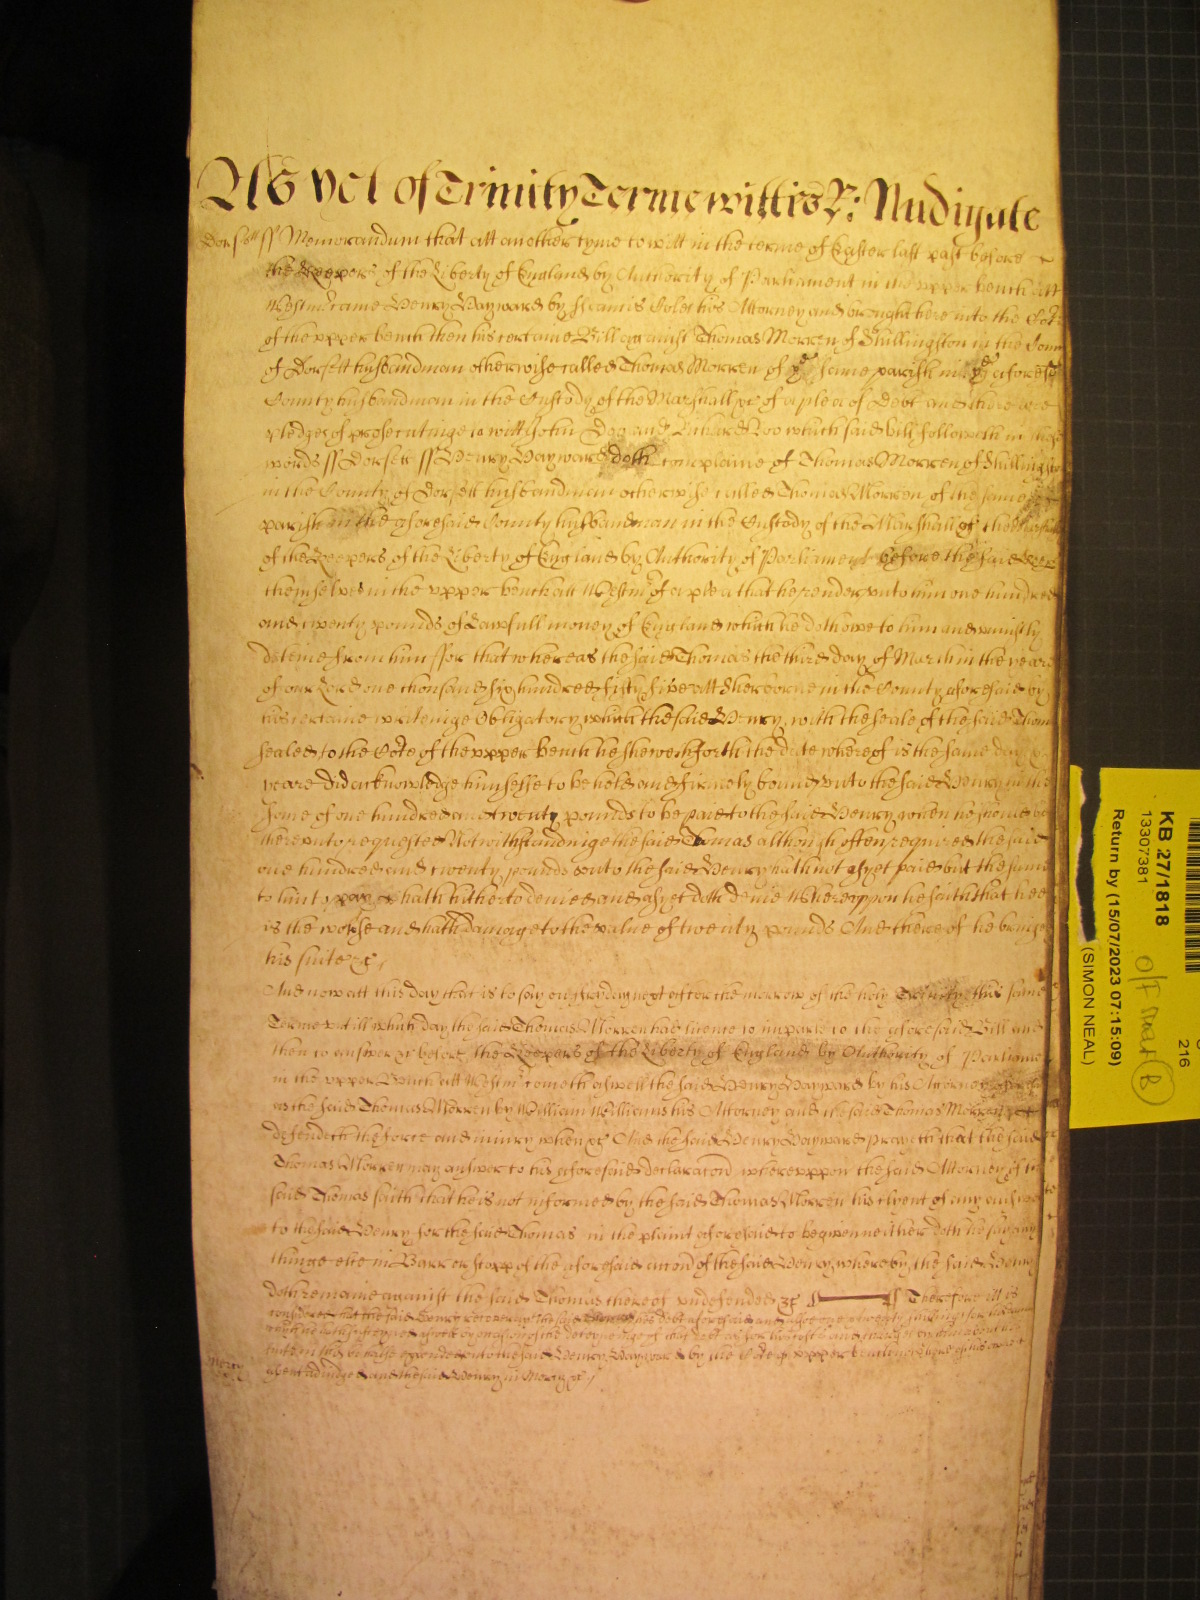 As yet of Trinity Terme wittnes R: Nudigate
Dorsett ss Memorandum that att another tyme to witt in the terme of Easter last past before
the Keepers of the Liberty of England by Authority of Parliament in the upper bench att
Westmr came Henry Hayward by Francis Coles his Attorney and brought here into the Cort
of the upper bench then his certaine Bill against Thomas Morren of Shillingston in the County
of Dorsett husbandman otherwise called Thomas Morren of ye same parish in ye aforesd
County husbandman in the Custody of the Marshall &c of a plea of Debt and there are
pledges of prosecutinge to witt John Doo and Richard Roo which said bill followeth in these
words ss Dorsett ss Henry Hayward doth complaine of Thomas Morren of Shillingston
in the County of Dorsett husbandman otherwise called Thomas Morren of the same
parish in the aforesaid County husbandman in the Custody of the Marshall of the Marshalsea
of the Keepers of the Liberty of England by Authority of Parliament before the said Keepers
themselves in the upper bench att Westmr of a plea that he render unto him one hundred
and twenty pounds of Lawfull money of England which he doth owe to him and uniustly
deteine from him ffor that whereas the said Thomas the third day of March in the yeare
of our Lord one thousand six hundred fifty five att Sherborne in the County aforesaid by
his certaine writeinge Obligatory which the said Henry with the seale of the said Thomas
sealed to the Cort of the upper bench he sheweth forth the date whereof is the same day &
yeare did acknowledge himselfe to be held and firmely bound unto the said Henry in the
some of one hundred and twenty pounds to be paid to the said Henry when he should be
thereunto requested Notwithstandinge the said Thomas although often required the said
one hundred and twenty pounds unto the said Henry hath not as yet paid but the same
to him to pay hath hitherto denied and as yet doth denie Whereuppon he saith that hee
is the worse and hath damage to the value of twenty pounds And thereof he bringeth
his suite &c
And now att this day that is to say on fryday next after the morrow of the holy Trinity this same
Terme untill which day the said Thomas Morren had licence to imparle to the aforesaid Bill and
then to answer &c before the Keepers of the Liberty of England by Authority of Parliament
in the upper Bench att Westmr cometh aswell the said Henry Hayward by his Attorney aforesaid
as the said Thomas Morren by William Williams his Attorney and the said Thomas Morren
defendeth the force and iniury when &c And the said Henry Hayward prayeth that the said
Thomas Morren may answer to his aforesaid declaracon whereuppon the said Attorney of the
said Thomas saith that he is not informed by the said Thomas Morren his clyent of any answer
to the said Henry for the said Thomas in the plaint aforesaid to be given neither doth he say any
thinge else in Barr or stopp of the aforesaid accon of the said Henry whereby the said Henry
doth remaine against the said Thomas thereof undefended &c Therefore itt is
considered that the said Henry recover against the said Thomas his debt aforesaid and alsoe
which he hath susteyned aswell by occasion of the deteyninge of that debt as for his costs and charges by him about his
suite in this behalfe expended unto the said Henry Hayward by the Cort of upper bench now here of his owne
assent adiudged and the said Henry in Mercy &c
Mercy
KB 27/1818
13307381
Return by (15/07/2023 07:15:09)
(SIMON NEAL)
216
B